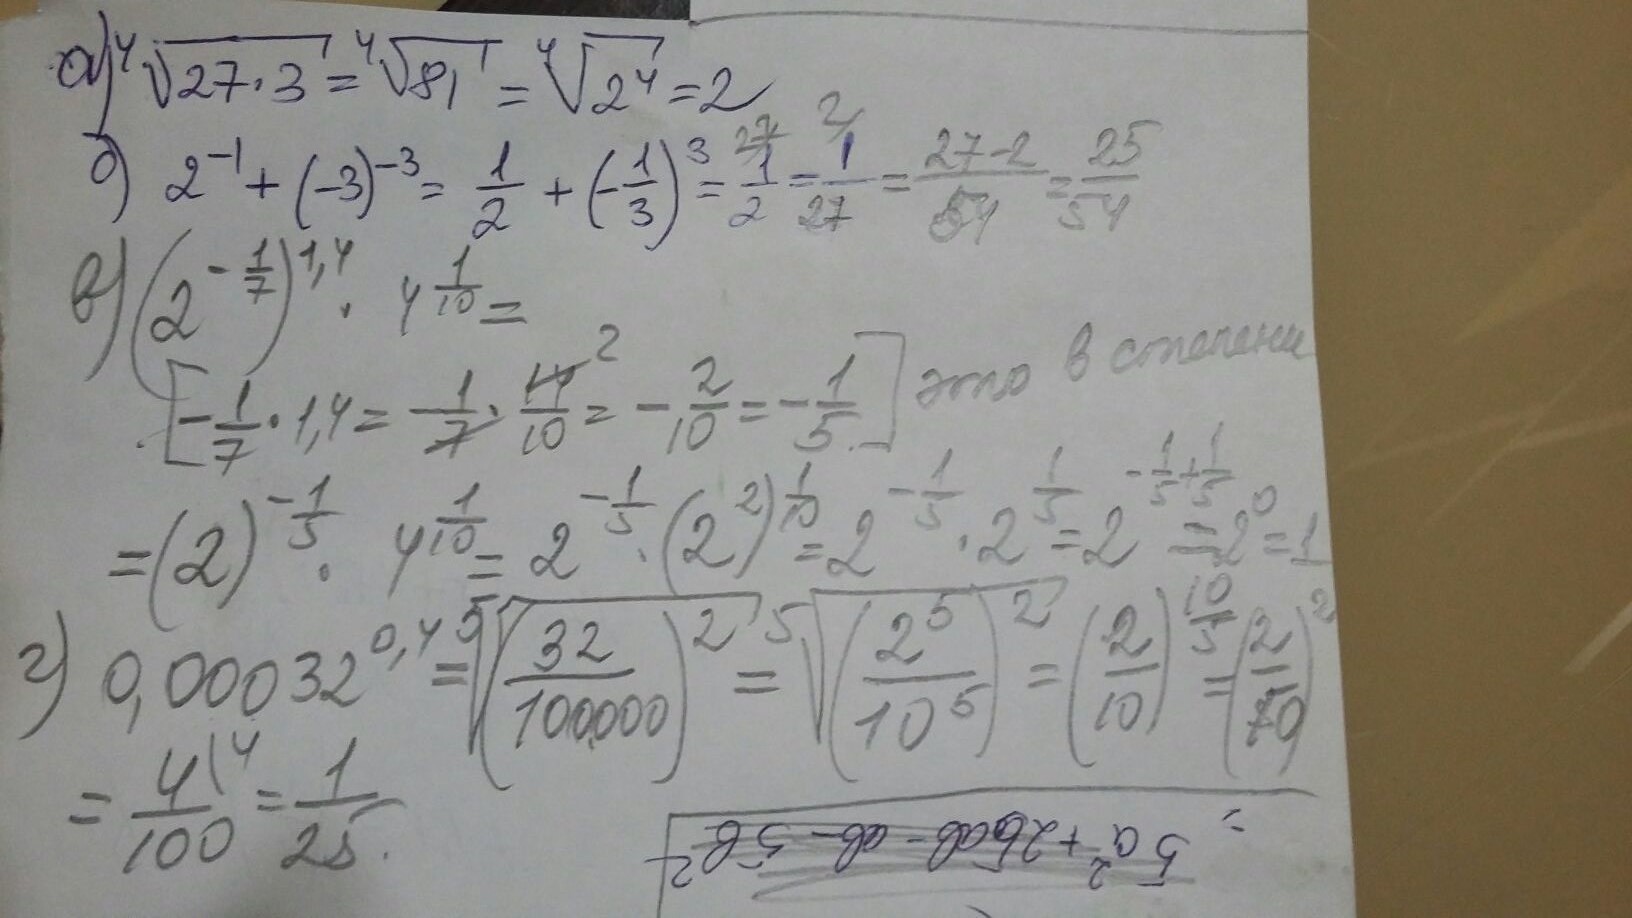 а) ⁴√(27·3) = ⁴√81 = ⁴√(2⁴) = 2
б) 2⁻¹ + (-3)⁻³ = 1/2 + (-1/3)³ = 27/ 1/2 = 2/ 1/27 = (27-2)/54 = 25/54
в) (2^(-1/7))^(1,4) · 4^(1/10) =
[-1/7 · 1,4 = -1/7 · 14/10 2 = -2/10 = -1/5.] это в степени
= (2)^(-1/5) · 4^(1/10) = 2^(-1/5) · (2²)^(1/10) = 2^(-1/5) · 2^(1/5) = 2^(-1/5+1/5) = 2⁰ = 1
г) 0,00032^(0,4) = ⁵√((32/100000)²) = ⁵√((2⁵/10⁵)²) = (2/10)^(10/5) = (2/10)²
= 4/100 |4 = 1/25.
5a² + 26ab - ab - 5b²
=